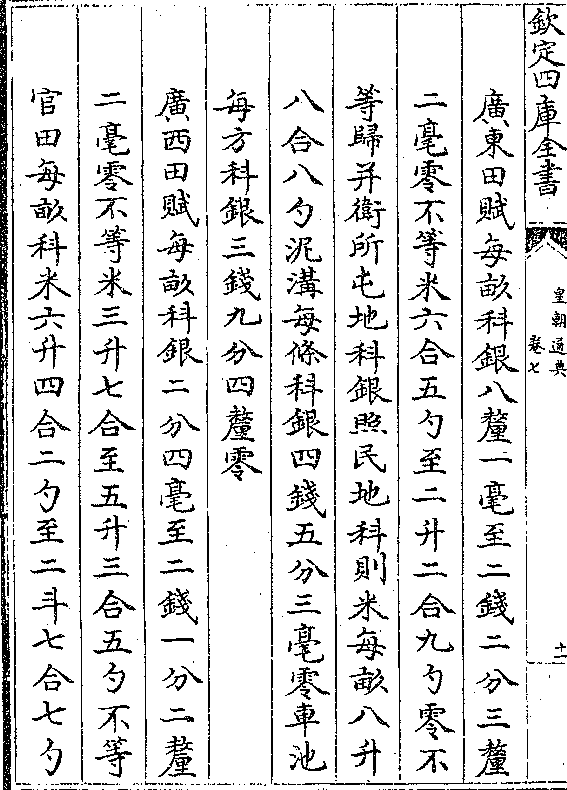 欽定四庫全書
皇朝通典
卷七
十一
廣東田賦每畝科銀八釐一毫至二錢二分三釐
二毫零不等米六合五勺至二升二合九勺零不
等歸并衛所屯地科銀照民地科則米每畝八升
八合八勺泥溝每條科銀四錢五分三毫零車池
每方科銀三錢九分四釐零
廣西田賦每畝科銀二分四毫至二錢一分二釐
二毫零不等米三升七合至五升三合五勺不等
官田每畝科米六升四合二勺至二斗七合七勺